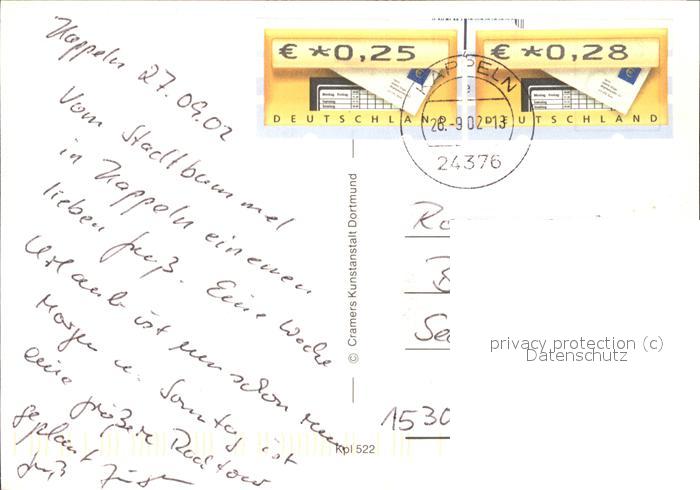 Kappeln 27.09.02
Vom Stadtbummel
in Kappeln einenen
lieben Gruß. Eine Woche
Urlaub ist nun schon rum
Morgen u. Sonntag ist
eine größere Radtour
geplant
Gruß Jürgen
€ *0,25
DEUTSCHLAND
€ *0,28
DEUTSCHLAND
KAPPELN
28.-9.02-13
24376
© Cramers Kunstanstalt Dortmund
Kpl 522
Ro
B
Se
1530
privacy protection (c)
Datenschutz